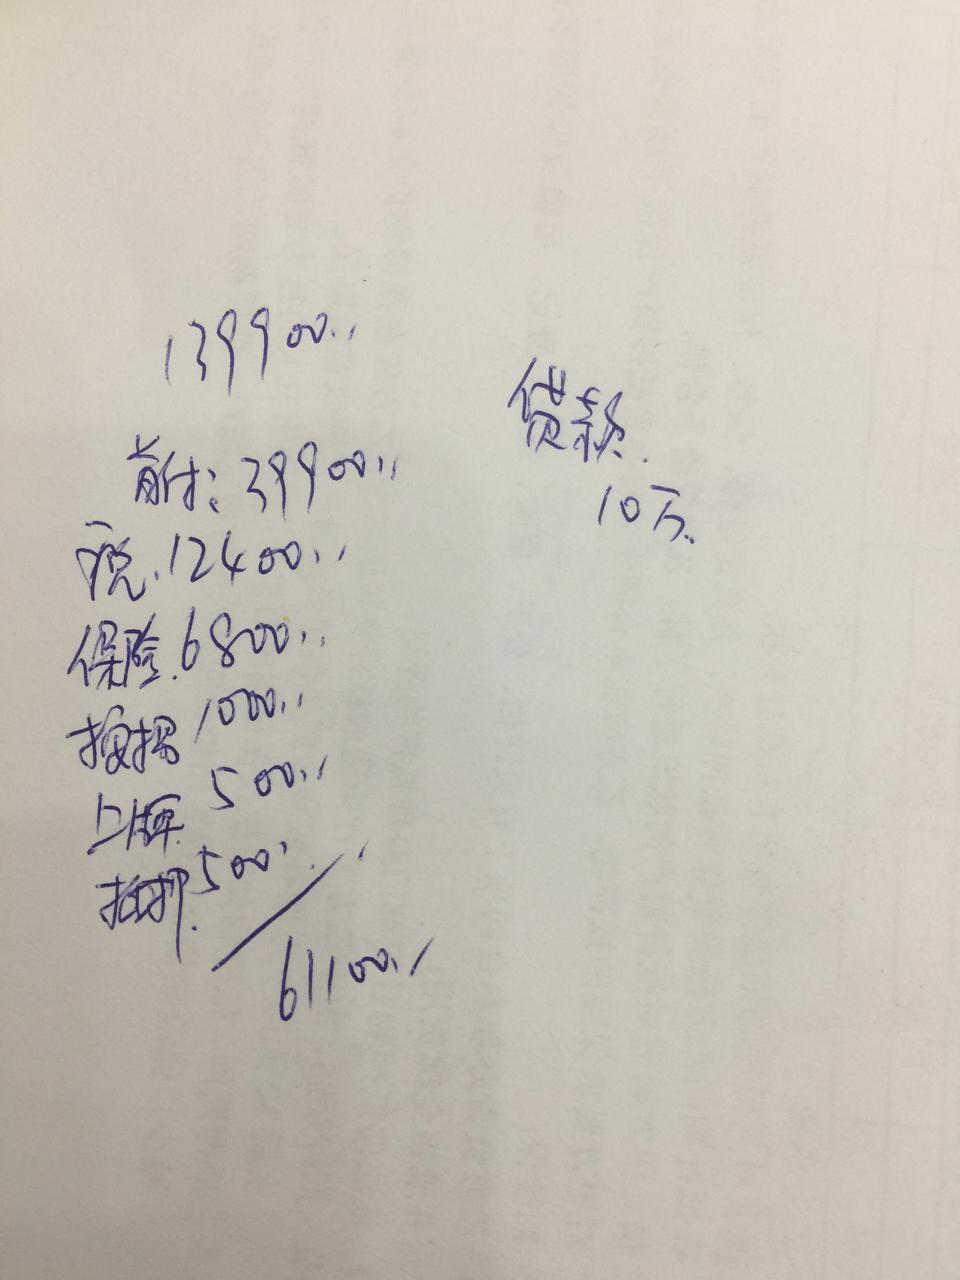 139900
首付：39900
税.12400
保险.6800
按揭1000
上牌.500
抵押.500
61100
贷款.
10万.